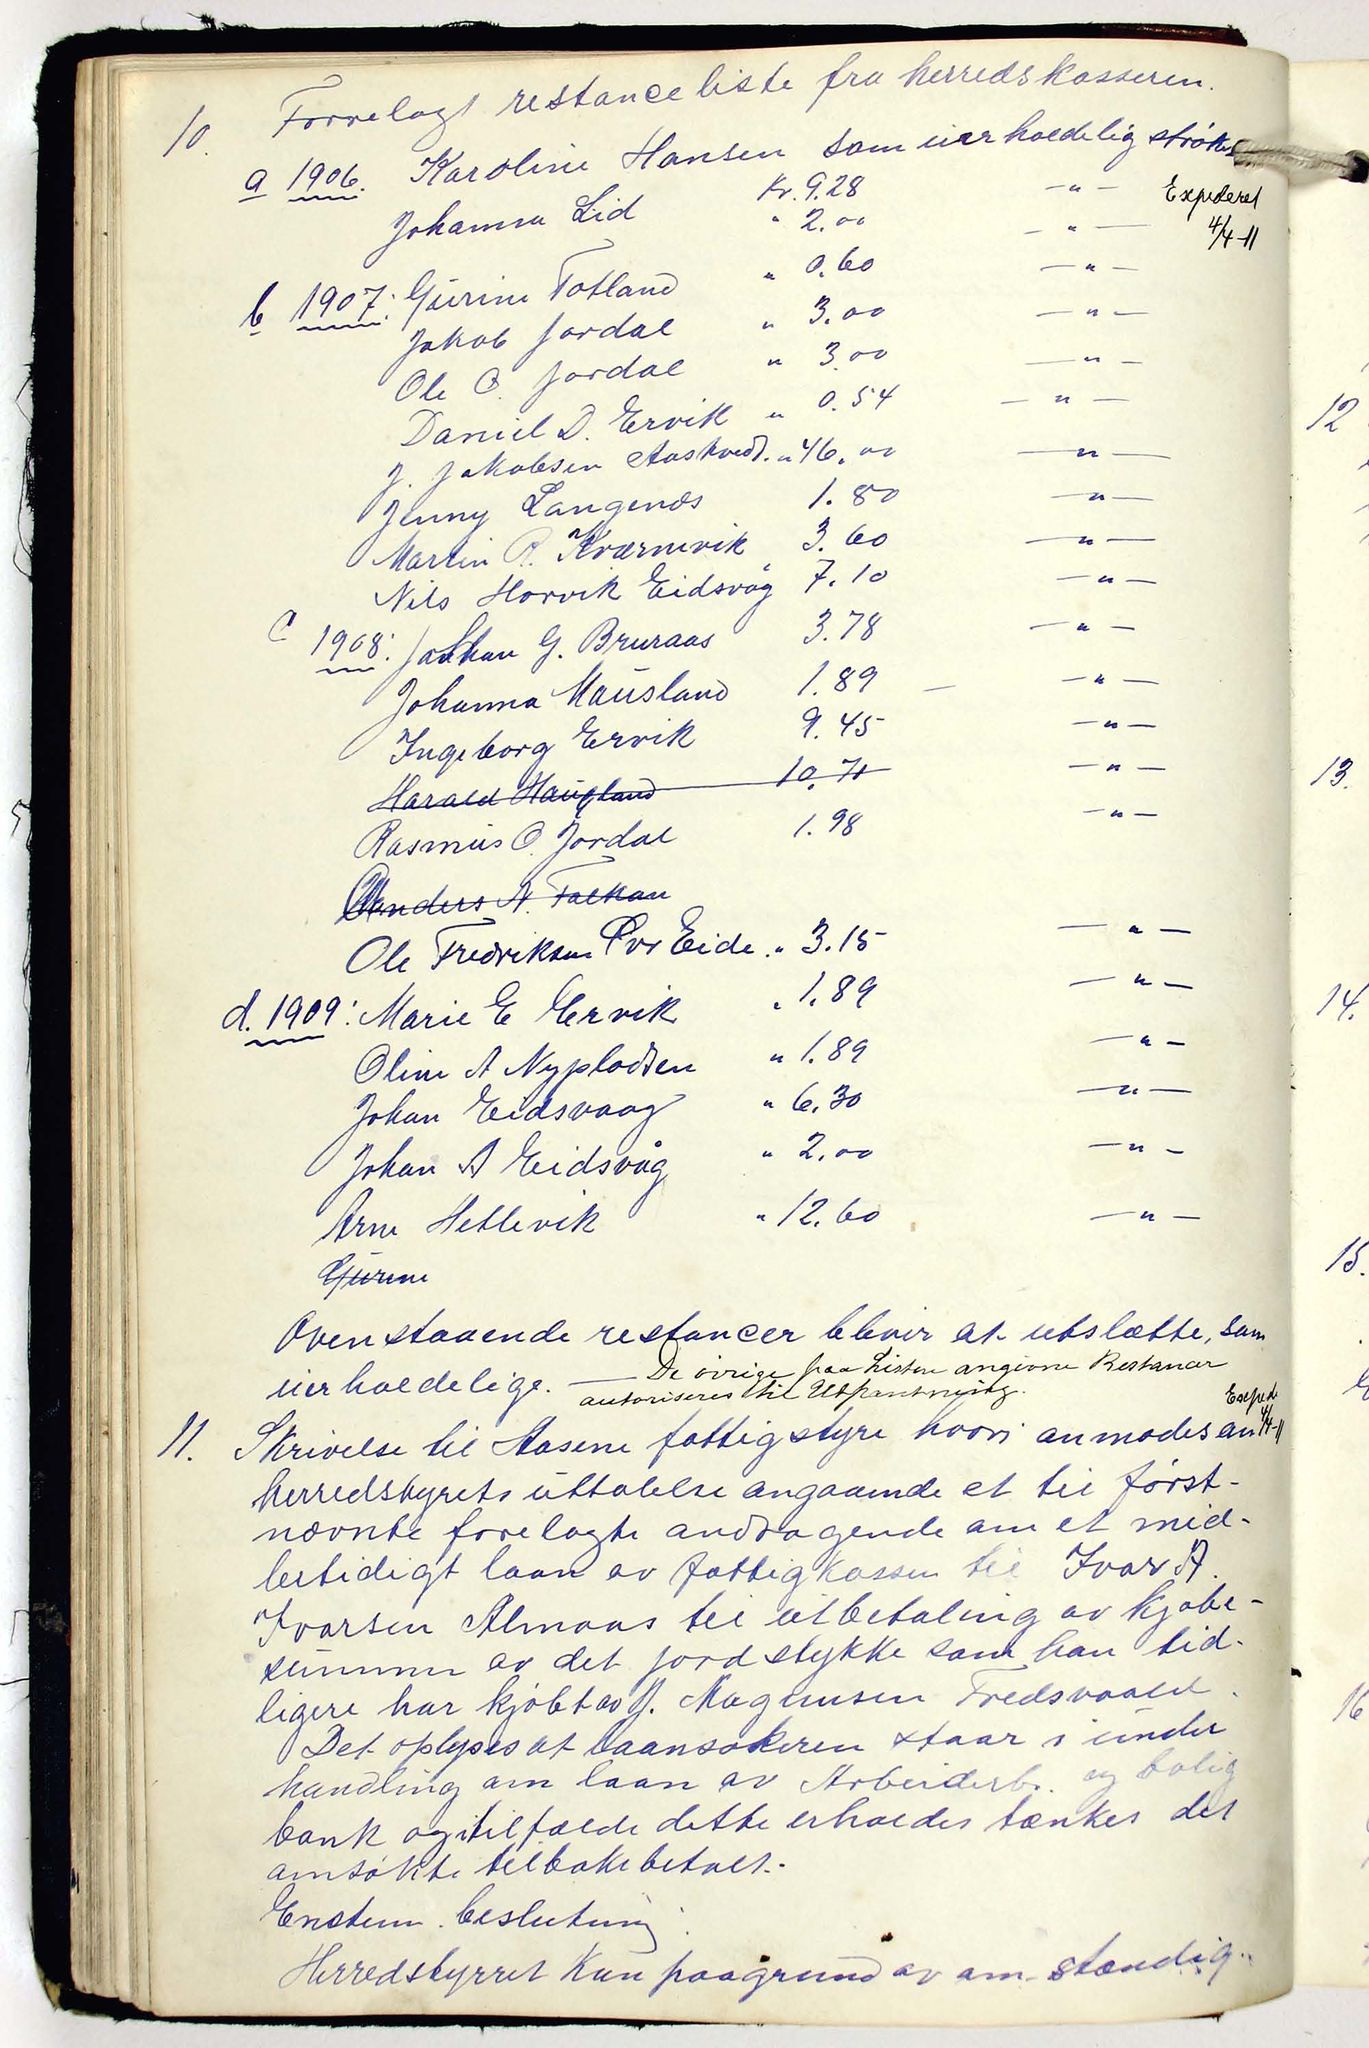 10. Forrelagt restanceliste fra herredskasseren.
a 1906. Karoline Hansen som uerholdelig strøkes
Kr. 9.28 —"— Expederet
Johanna Lid " 2.00 —"— 4/4-11
b 1907: Gurine Totland " 0.60 —"—
Jakob Jordal " 3.00 —"—
Ole O. Jordal " 3.00 —"—
Daniel D. Ervik " 0.54 —"—
J. Jakobsen Aaskvedt. " 46.00 —"—
Jenny Langenes 1.80 —"—
Martin R. Kværnevik 3.60 —"—
Nils Horvik Eidsvåg 7.10 —"—
c 1908: Johan G. Bruraas 3.78 —"—
Johanna Mausland 1.89 — —"—
Ingeborg Ervik 9.45 —"—
Harald Haugland 10.71 —"—
Rasmus O. Jordal 1.98 —"—
Anders N. Falkan
Ole Fredriksen Øvr Eide. " 3.15 —"—
d. 1909: Marie E Ervik " 1.89 —"—
Oline A Nyplodsen " 1.89 —"—
Johan Eidsvaag " 6.30 —"—
Johan A Eidsvåg " 2.00 —"—
Arne Hetlevik " 12.60 —"—
Gurine
Ovenstaaende restancer blevir at utslætte, som
uerholdelige. — De øvrige paa Listen angivne Restancer
autoriseres til Utpantning.
Exped 4/4-11
11. Skrivelse til Aasene fattigstyre hvori anmodes om
herredstyrets uttalelse angaaende et til først-
nævnte forelagte andragende om et mid-
lertidigt laan av fattigkassen til Ivar A.
Ivarsen Almaas til utbetaling av kjøbe-
summen av det jordstykke som han tid-
ligere har kjøbt av J. Magnusen Fredsvaald.
Det oplyses at laansøkeren staar i under
handling om laan av Arbeiderb. og bolig
bank og i tilfælde dette erholdes tænkes det
ansøkte tilbakebetalt.
Enstem. beslutning.
Herredstyrret kan paagrund av om stændig-
12
13.
14.
15.
16